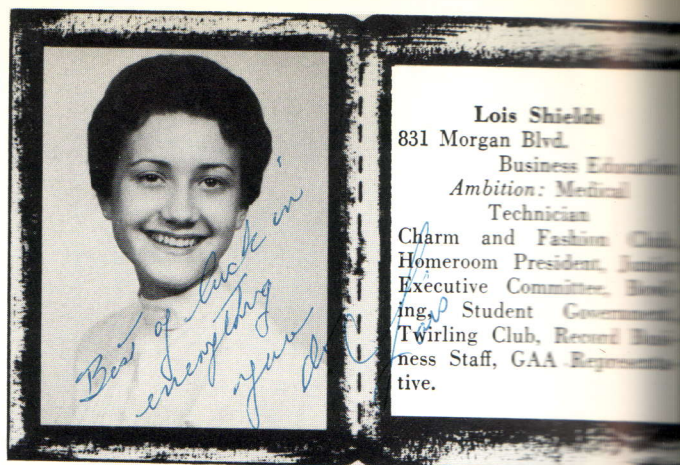 Best of luck in
everything
you
do
Lois
Lois Shields
831 Morgan Blvd.
Business Education
Ambition: Medical
Technician
Charm and Fashion Club,
Homeroom President, Junior
Executive Committee, Bowl-
ing, Student Government,
Twirling Club, Record Busi-
ness Staff, GAA Representa-
tive.